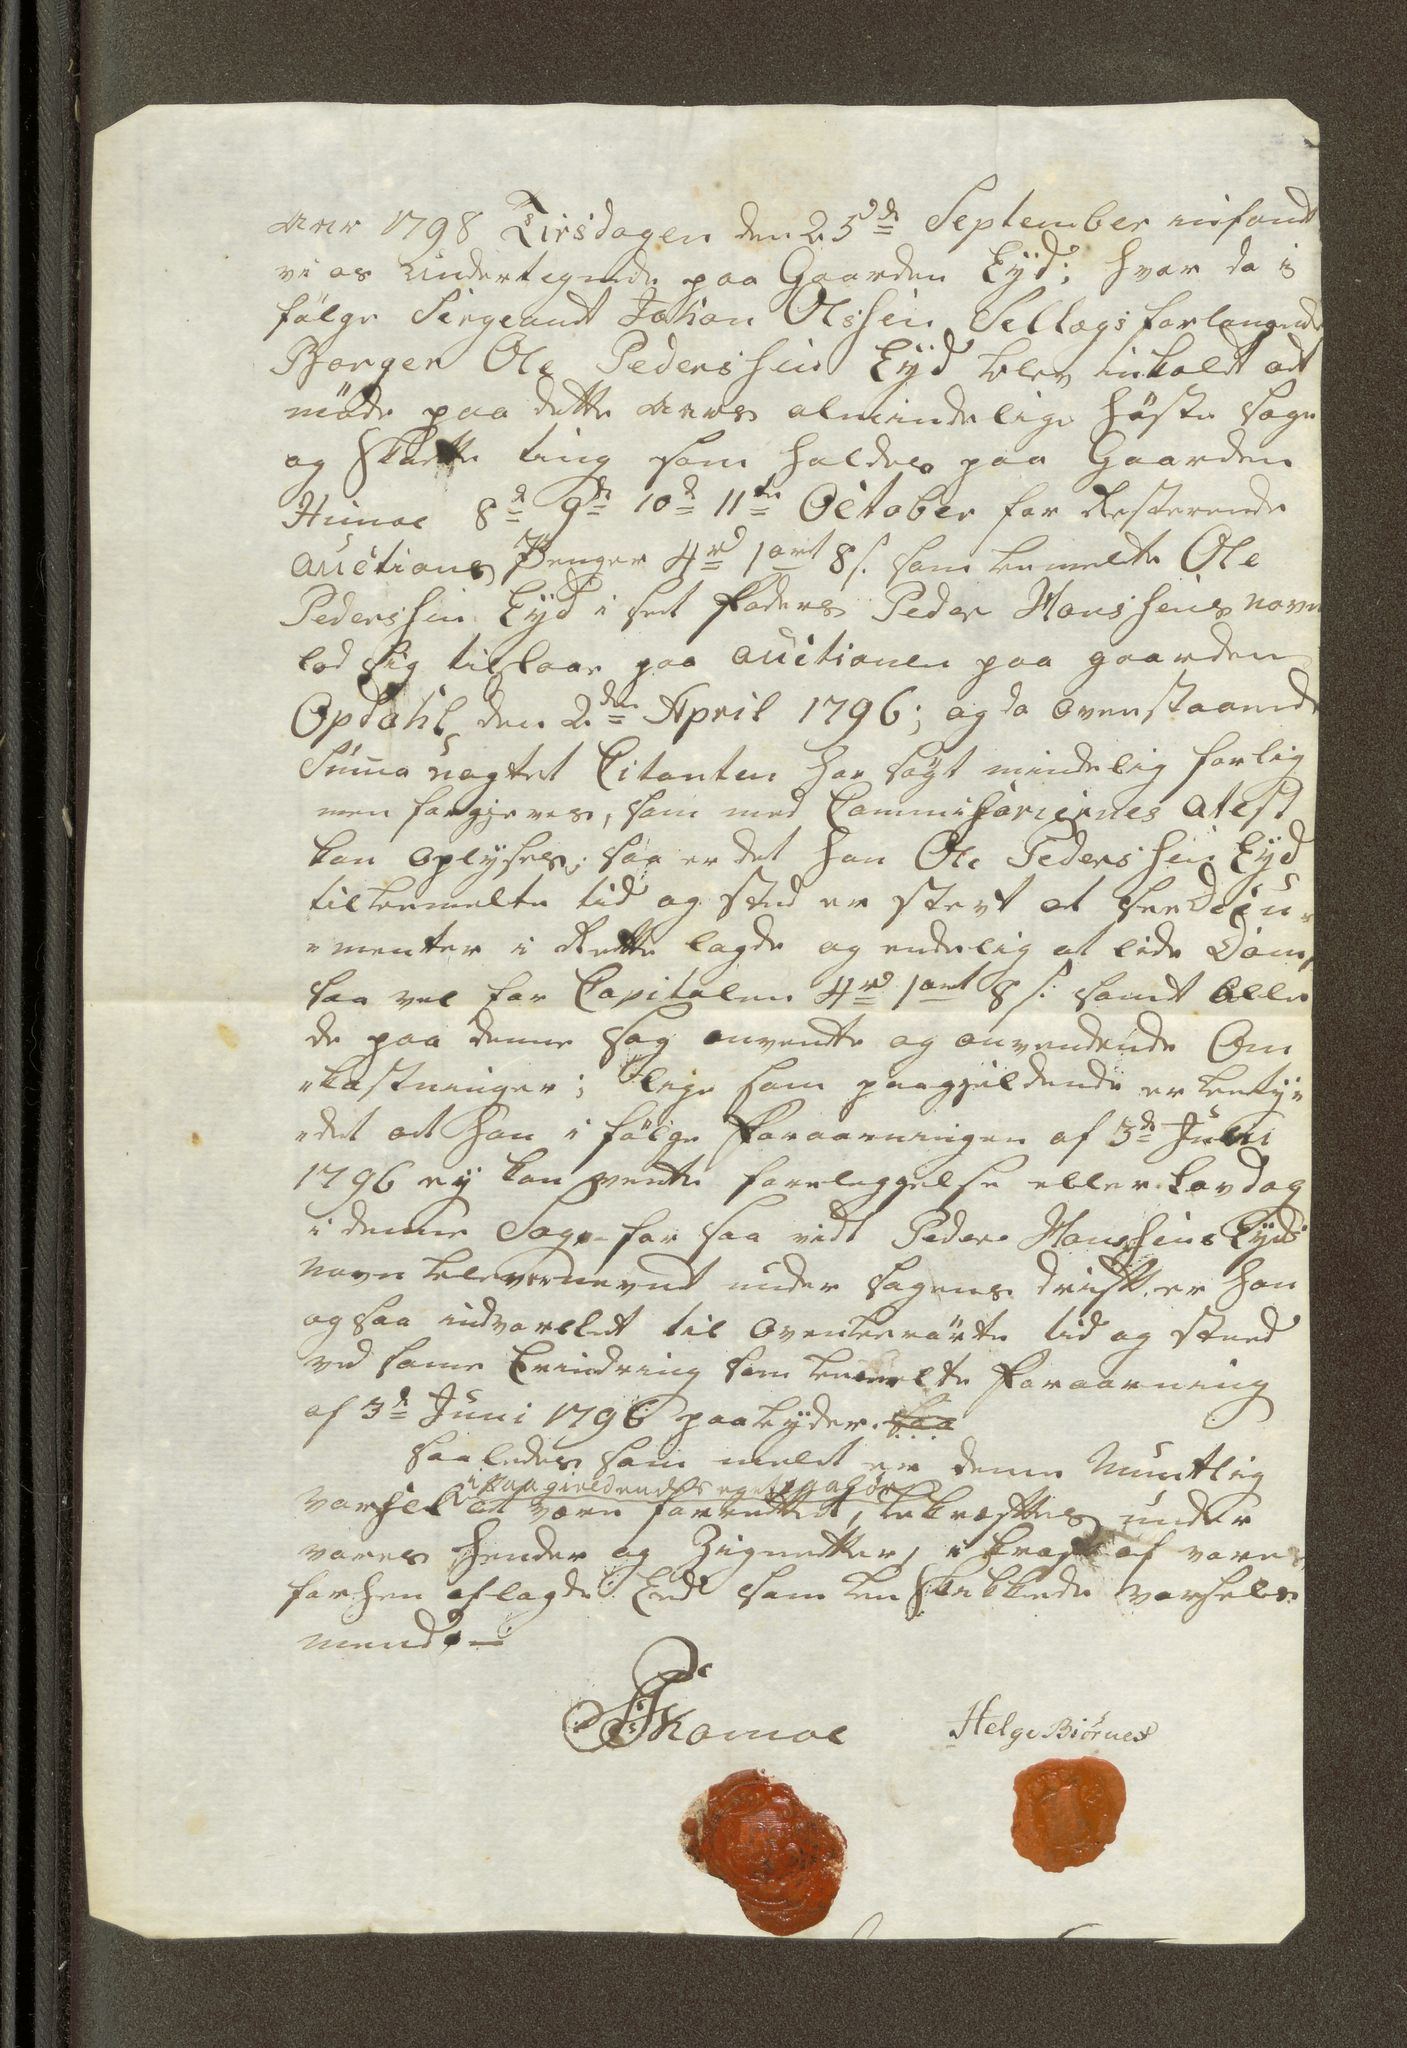 Aar 1798 Tirsdagen den 25de September infandt
vi os Undertegnede paa Gaarden Eÿd; hvor da i
følge Siergeandt Johan Olssen Sellegs forlangende
Borger Ole Pederssen Eÿd blev inkaldt at
møde paa dette Aars almindelige Høste Sage
og Skatte ting som holdes paa Gaarden
Hunoe 8de 9de 10de 11te October for Resterende
Auctions Penger 4rd 1ort 8s. som bemelte Ole
Pederssen Eÿd i sit Faders Peder Monssens navn
lod sig tilslaae paa Auctionen paa gaarden
Opdahl den 2den April 1796; og da ovenstaaende
Suma uagtet Citanten har søgt mindelig forlig
men forgjeves, som med Commissariernes Atest
kan oplÿses; saa er det han Ole Pederssen Eÿd
til bemelte tid og sted er stevt at see Docu-
-menter i Rette lagde og endelig at lide Dom,
saa vel for Capitalen 4rd 1ort 8s: samt alle
de paa denne Sag anvendte og anvendende Om
-kostninger; lige som paagjeldende er betÿ-
-det at han i følge Foraarningen af 3de Juni
1796 eÿ kan vente foreleggelse eller Lavdag
i denne Sag for saa vidt Peder Monssens Eÿds
Navn blever nevnt under Sagens drift er han
ogsaa indvarslet til ovenberørte tid og steed
ved same Erindring som bemelte Foraarning
af 3de Juni 1796 paabÿder. saa
saaledes som meldt er denne Muntlig
i Paagieldendes eget paahør
Varsel at være forrettet, bekræftes under
vores Hender og Zignetter, i kraft af vores
forhen aflagde Eed som beskikkede varsels
mend. —
Skomoe
Helge Biörnes